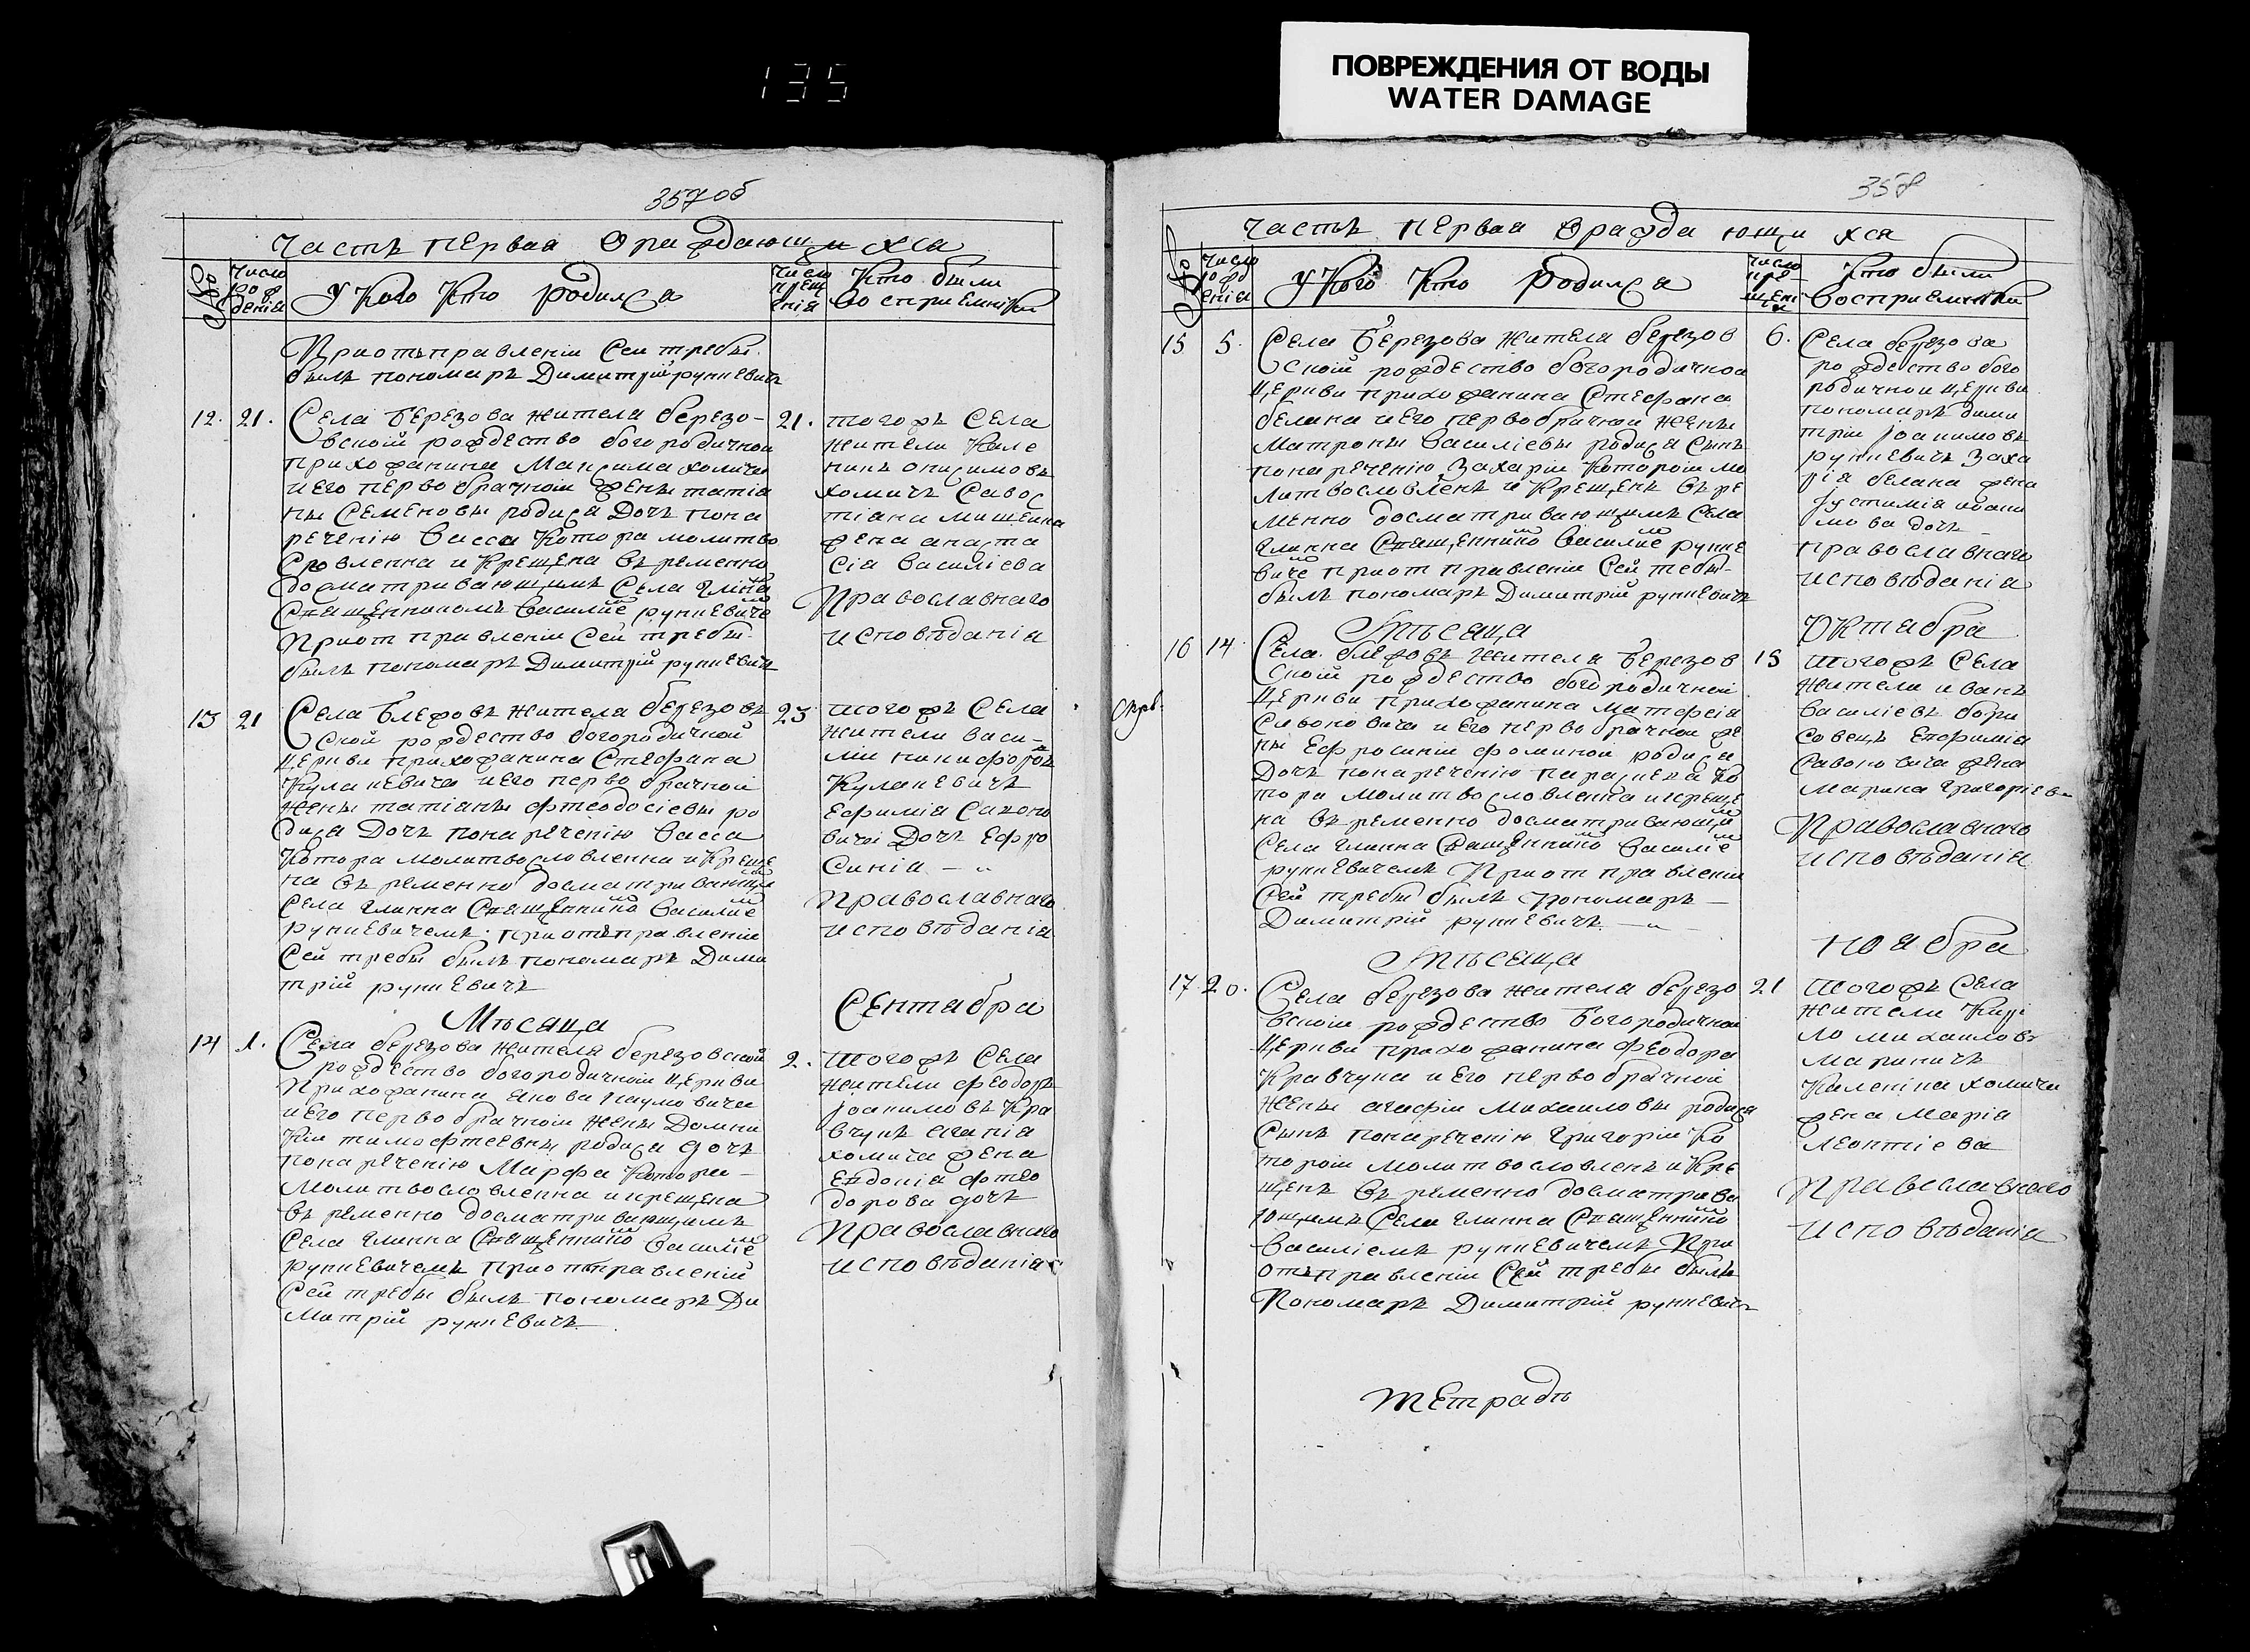 135
ПОВРЕЖДЕНИЯ ОТ ВОДЫ
WATER DAMAGE
357 об
Часть первая О раждающихся
Число рождения
У Кого Кто родился
Число крещения
Кто были восприемники
Приотьправлении Сеи требы
былъ пономаръ Димитрїй рункевичь
12. 21.
Села Березова жителя березо-
вской рождество богородичной
прихожанина Максима хомича
и его первобрачной жены татїа
ны Семеновы родися Дочь пона
речению Васса Котора молитво
словленна и Крещена въременно
досматривающимъ Села глинна
Священникомъ Василїем рункевиче
приот правлении Сей требы
былъ пономаръ Димитрїй рункевичь
21.
тогожъ Села
жители Кале
никъ онисимовъ
хомичъ Савос
тїана
жена анаста
сїа василїева
Православнаго
исповѣданїа
13 21
Села Блежовъ жителя березовъ
ской рождество богородичной
церкви прихожанина Стефана
Кулакевича иего перво брачной
жены татїаны фтеодосїевы ро
дися Дочь понаречению Васса
Котора молитвословленна и Креще
на въременно досматривающим
Села глинна Священнико Василїе
рункевичемъ приотьправлении
Сей требы былъ пономаръ Дими
трїй рункевичь
23
тогожъ Села
жители васи-
лїи никифоровъ
Кулакевичъ
Ефимїа Савоно
вича Дочь Ефро
Синїа – „
православнаго
исповѣданїа
Мѣсяца
Сентабра
14 1.
Села березова жителя березовской
рождество богородичной церкви
Прихожанина Якова наумовича
и его первобрачной жены Домни
кїи тимофтеевны родися дочь
понаречению Марфа Котора –
Молитвословленна и крещена
въременно досматривающимъ
Села глинна Священнико Василїе
рункевичемъ приотьправлении
Сей требы былъ пономаръ Ди
митрїй рункевичь
2.
тогожъ Села
жители феодоръ
Іоакимовъ Кра
вчукъ агапїа
хомича жена
Евдокїа фтео
дорова дочь
Православнаго
исповѣданїа
358
Часть первая О раждающихся
Число рождения
У Кого Кто родился
Число крещения
Кто были восприемники
15 5.
Села Березова жителя березов
ской рождество богородичной
церкви прихожанина Стефана
белана и его первобрачной жены
Матроны Василїевы родися Сынъ
понаречению Захарїи Которой мо
литвословленъ и Крещенъ въре
менно досматривающимъ Села
глинна Священнико Василїе рунке
виче приот правлении Сей требы
былъ пономаръ Димитрїй рункевичь
6.
Села березова
рождество бого
родичной церкви
пономаръ дими
трїи Іоакимовъ
рункевичь Заха
рїа белана жена
Іустимїа
мова дочь
православнаго
исповѣданїа
Мѣсяца
Октабра
16 14
Села блежовъ жителя Березов
ской рождество богородичной
церкви прихожанина Матфеїа
Савоновича и его первобрачной же
ны Ефросинїи фоминой родися
Дочь понаречению параскева Ко
тора Молитвословленна и креще
на въременно досматривающи
Села глинна Священнико Василїе
рункевичемъ Приот правлении
Сей требы былъ пономаръ –
Димитрїй рункевичь – „ –
15
тогожъ Села
жители иванъ
василїевъ бори
совецъ Епфимїа
Савоновича жена
Марина григорїева
Православнаго
исповѣданїа
Мѣсяца
Ноабра
17 20.
Села березова жителя березо
вской рождество Богородичной
Церкви прихожанина феодора
Кравчука и Его первобрачной
жены агафїи Михаиловы родися
Сынъ понаречению григорїи Ко
торой молитвословленъ и Кре
щенъ въременно досматрива
ющимъ Села глинна Священнико
Василїемъ рункевичемъ При
отьправлении Сей требы былъ
Пономаръ Димитрїй рункевичь
21
тогожъ Села
жители Кирі
ло михаиловъ
Мариничъ
Калениka хомича
жена Марїа
леонтїева
Православнаго
исповѣданїа
тетрадь